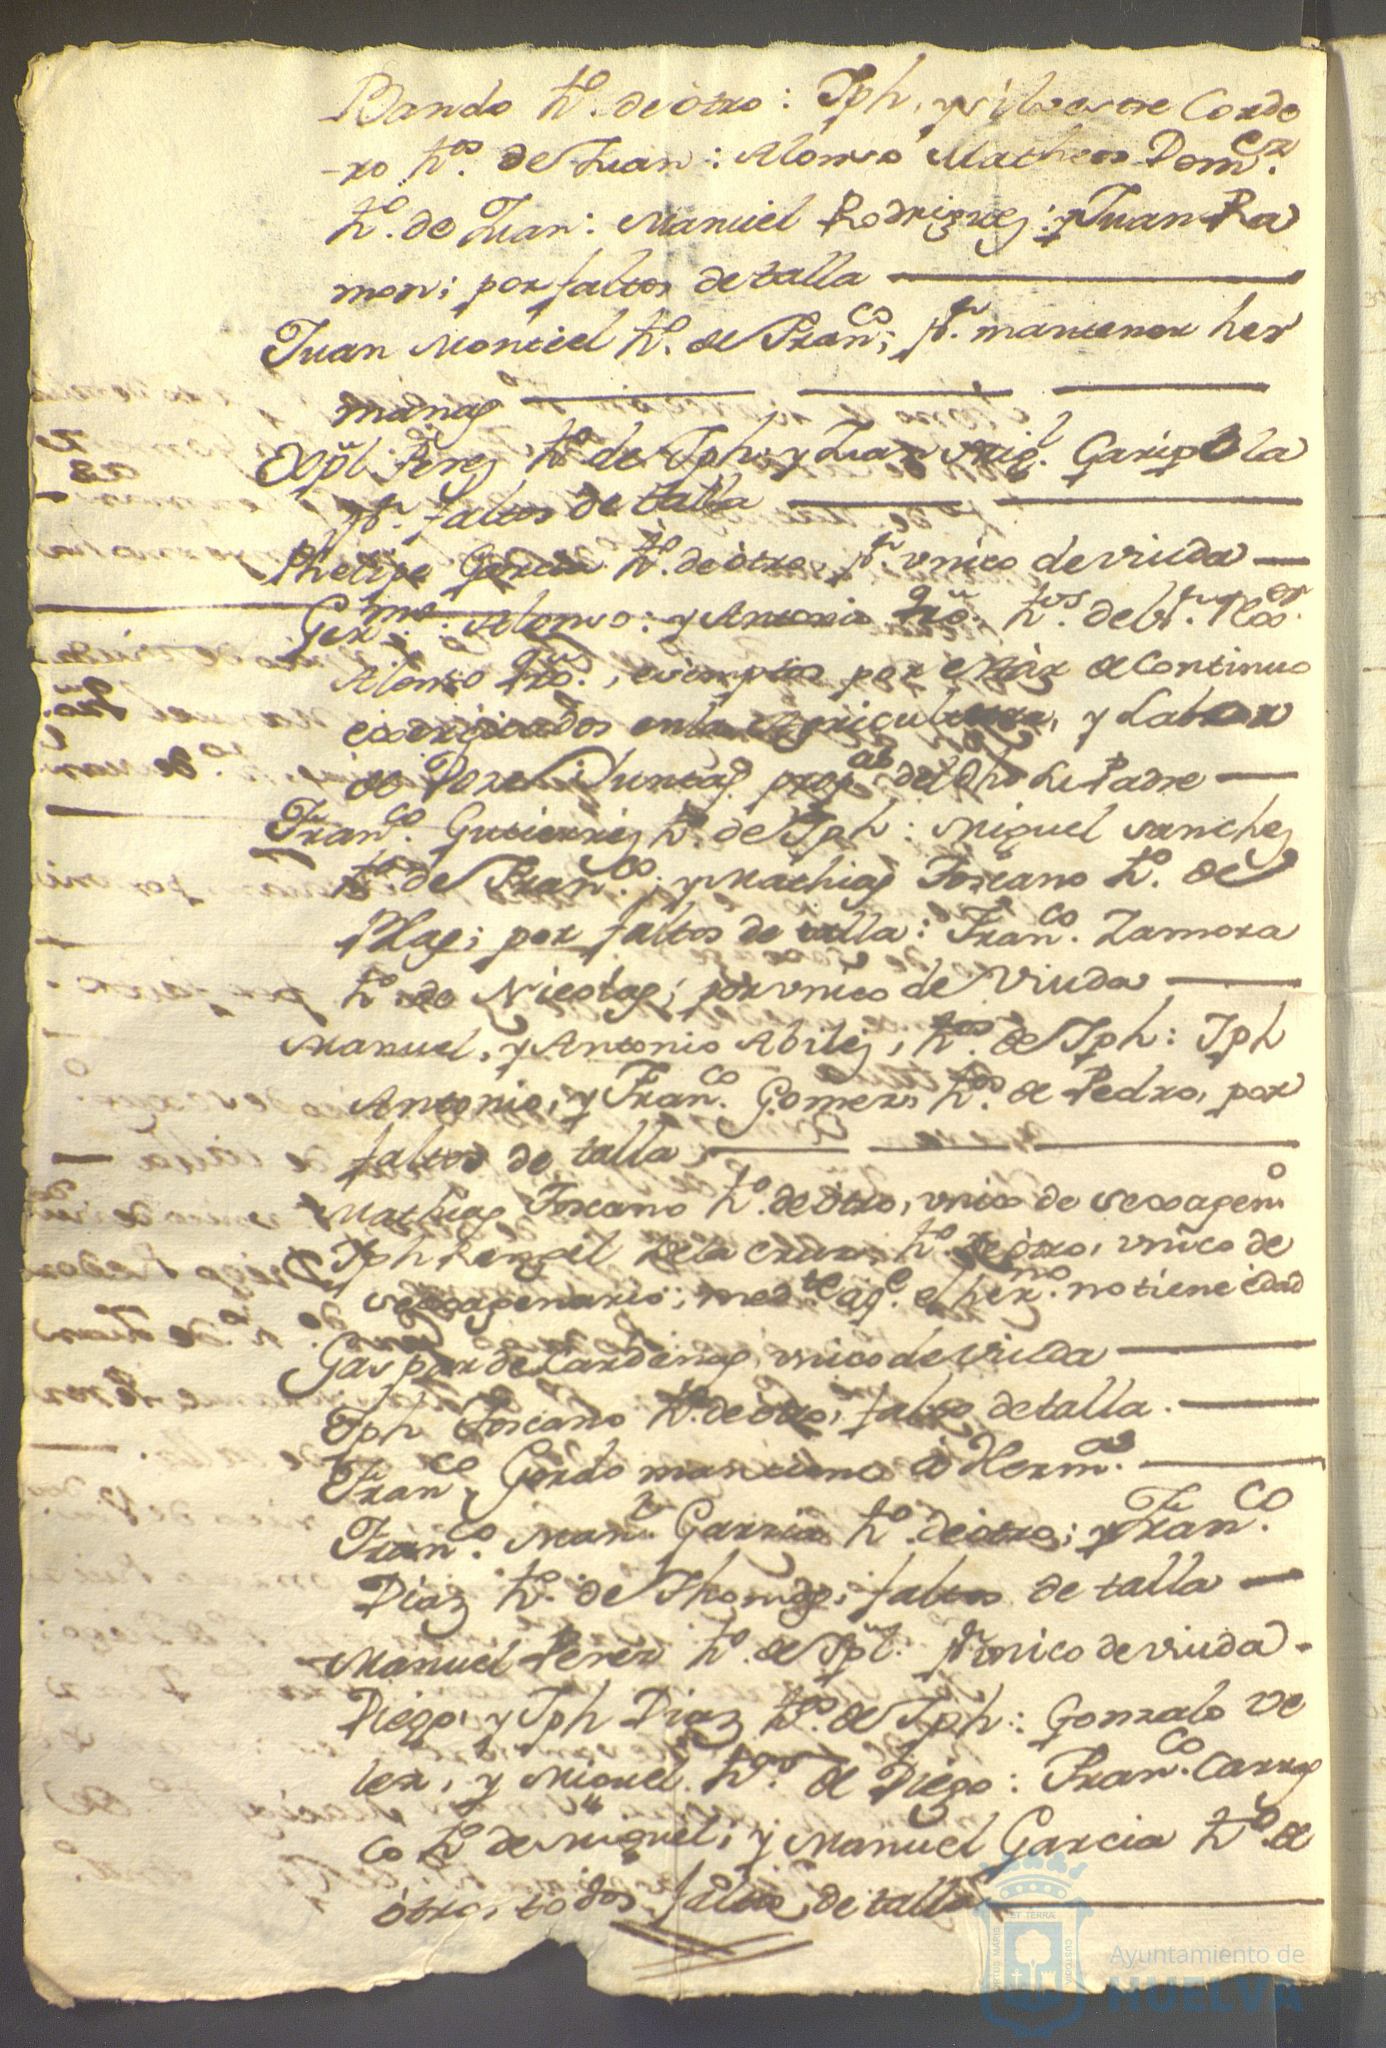 Bando hº. de otro: Jph, y silvestre Corde
-ro hºs. de Juan: Alonso Matheos Domez.
hº. de Juan: Manuel Rodriguez: y Juan Ra
mon; por faltos de talla
Juan Montiel hº. de Franco; pr. mantener her
manas
Xpl. Perez hº. de Jph. y Juan Migl. Garigola
pr. faltos de talla
Phelipe Garcia hº. de otro pr. unico de viuda
Germo. Alonso: y Antonio hºs. de
Alonso, exemptos por estar de continuo
exercitados en la Agricultura, y Labor
de propas. del dho Su Padre
Franco. Gutierrez hº. de Jph: Miguel Sanchez
hº. de Franco.; y Mathias Toscano hº. de
Blas; por faltos de talla: Franco. Zamora
hº. de Nicolas; por unico de Viuda
Manuel, y Antonio Abilez, hºs. de Jph: Jph
Antonio, y Franco. Gomez, hºs. de Pedro, por
faltos de talla
Mathias Toscano hº. de otro, unico de sexagenº
Jph Rangel de la Cruz, hº. de otro, unico de
sexagenario; medte. aqe. el herno. no tiene edad
Gaspar de Cardenas, unico de viuda
Jph Toscano hº. de otro, falto de talla.
Franco. Gordo mantiene a Hermas.
Franco. Manl. Garcia hº. de otro; y Franco.
Diaz hº. de Thomas; faltos de talla
Manuel Perez hº. de Xpl. pr. unico de viuda
Diego, y Jph Diaz hºs. de Jph: Gonzalo Ve
lez, y Miguel hºs. de Diego: Franco. Carras
co hº. de Miguel, y Manuel Garcia hº. de
otro, todos faltos de talla
Ayuntamiento de
HUELVA